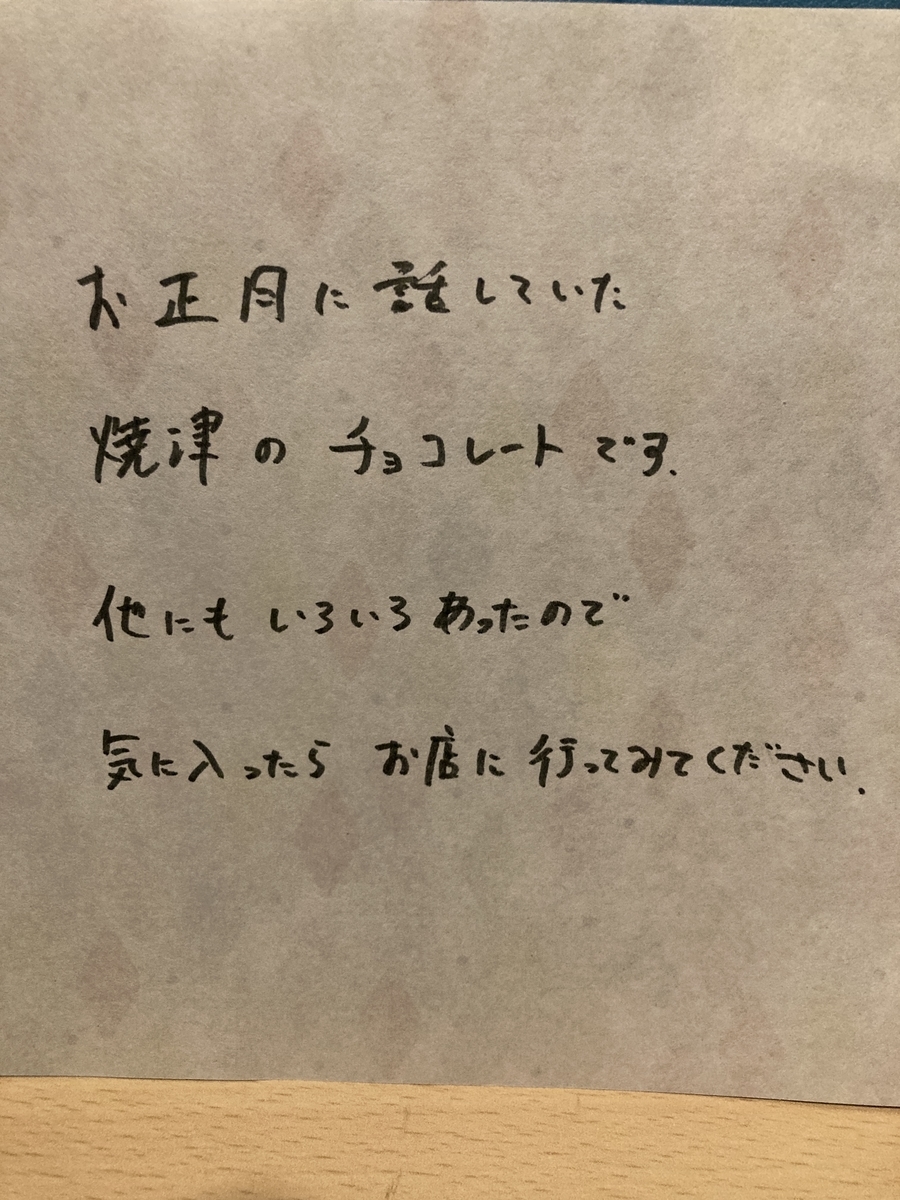 お正月に話していた
焼津の チョコレートです.
他にも いろいろ あったので
気に入ったら お店に 行ってみてください.